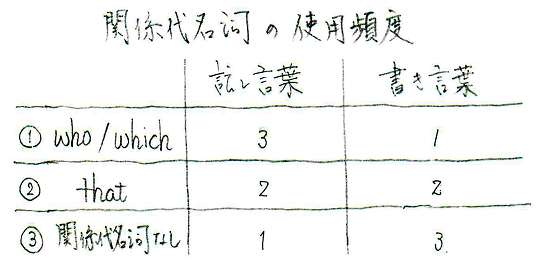 関係代名詞の使用頻度
話し言葉 書き言葉
① who/which 3 1
② that 2 2
③ 関係代名詞なし 1 3